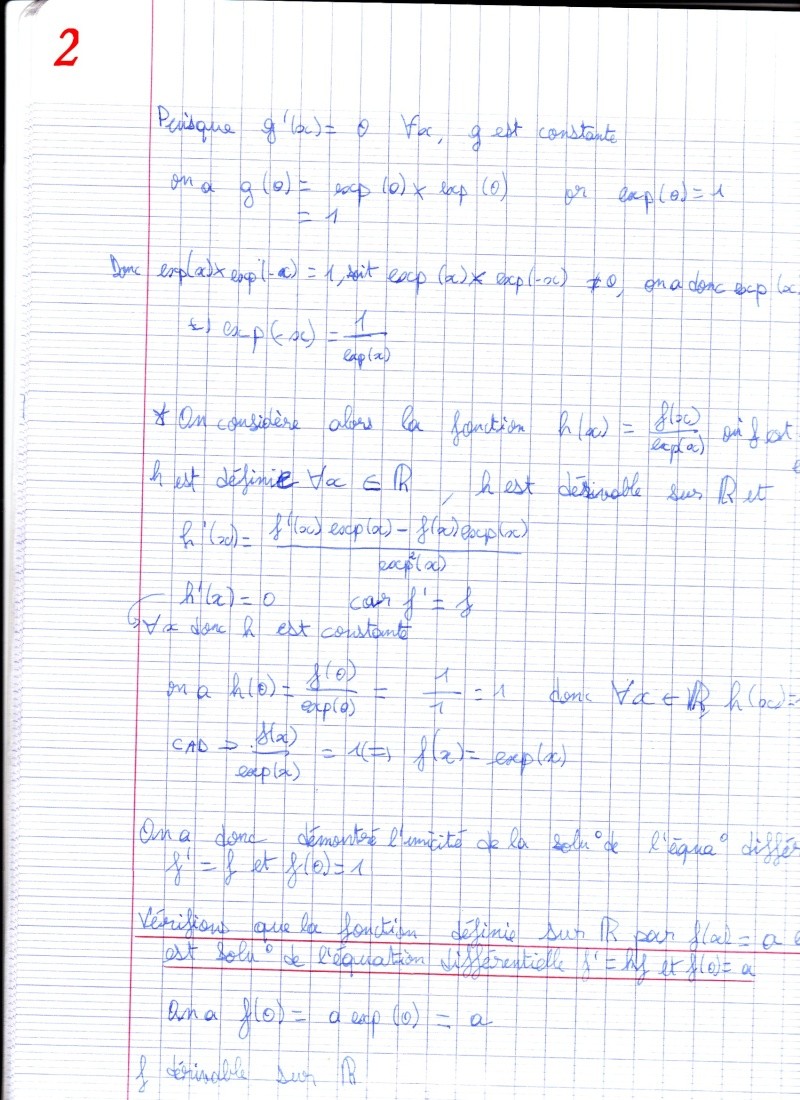 2
Puisque g'(x) = 0 ∀x, g est constante
on a g(0) = exp(0) × exp(0) or exp(0) = 1
= 1
Donc exp(x) × exp(-x) = 1, soit exp(x) × exp(-x) ≠ 0, on a donc exp(x
exp(-x) = 1/exp(x)
* On considère alors la fonction h(x) = f(x)/exp(x) où f est
h est définie ∀x ∈ ℝ, h est dérivable sur ℝ et
h'(x) = f'(x) exp(x) - f(x) exp(x) / exp²(x)
h'(x) = 0 car f' = f
∀x donc h est constante
on a h(0) = f(0)/exp(0) = 1/1 = 1 donc ∀x ∈ ℝ, h(x) = 1
CAD ⇒ f(x)/exp(x) = 1 ⇔ f(x) = exp(x)
On a donc démontré l'unicité de la solu° de l'équa° différ
f' = f et f(0) = 1
Vérifions que la fonction définie sur ℝ par f(x) = a e
est solu° de l'équation différentielle f' = kf et f(0) = a
On a f(0) = a exp(0) = a
f dérivable sur ℝ